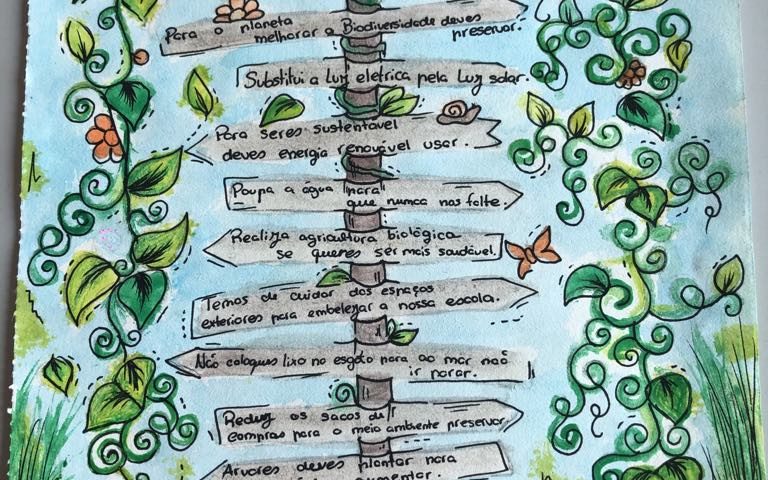 Para o planeta
melhorar a Biodiversidade deves
preservar.
Substitui a Luz eletrica pela Luz solar.
Para seres sustentável
deves energia renovável usar.
Poupa a água para
que nunca nos falte.
Realiza agricultura biológica
se queres ser mais saudável.
Temos de cuidar dos espaços
exteriores para embelezar a nossa escola.
Não coloques lixo no esgoto para ao mar não
ir parar.
Reduz os sacos de
compras para o meio ambiente preservar.
Árvores deves plantar para
aumentar.